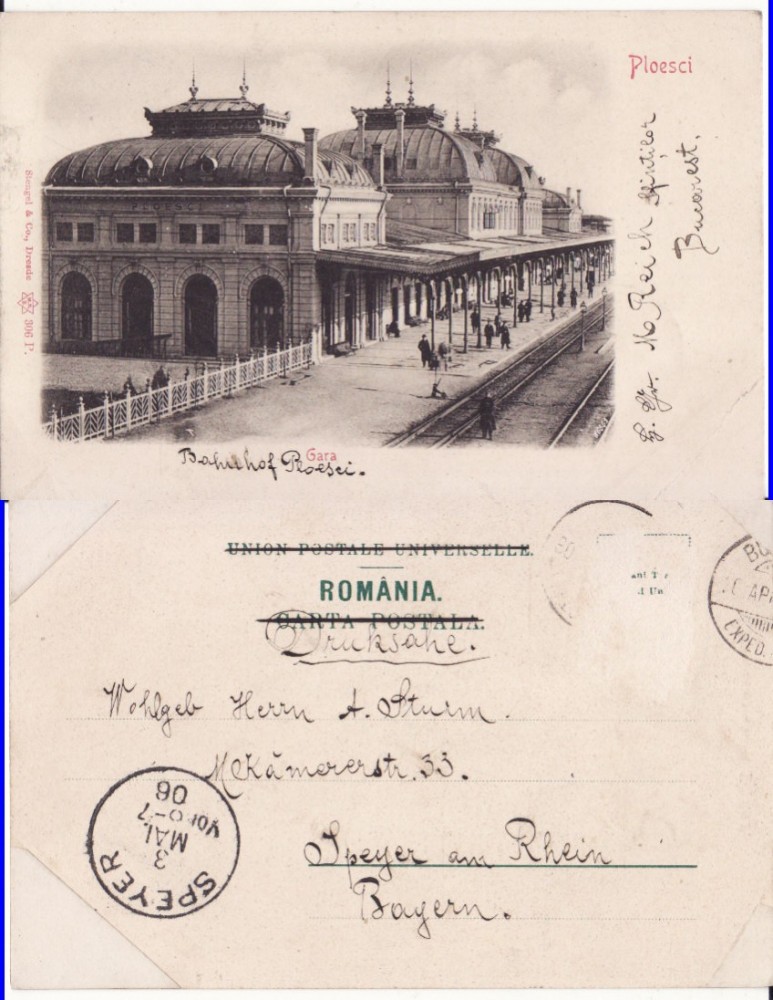 Ploesci
Stengel & Co., Dresde 306 P.
M. Reich Sfintilor
Bucarest.
Gara
Bahnhof Ploesci.
UNION POSTALE UNIVERSELLE.
ROMÂNIA.
CARTA POSTALA.
Druksahe.
BU
APR
EXPED.
Wohlgeb Herrn A. Sturm.
Kämererstr. 33.
Speyer am Rhein
Bayern.
SPEYER
3
MAI.
VOR 6-7
06